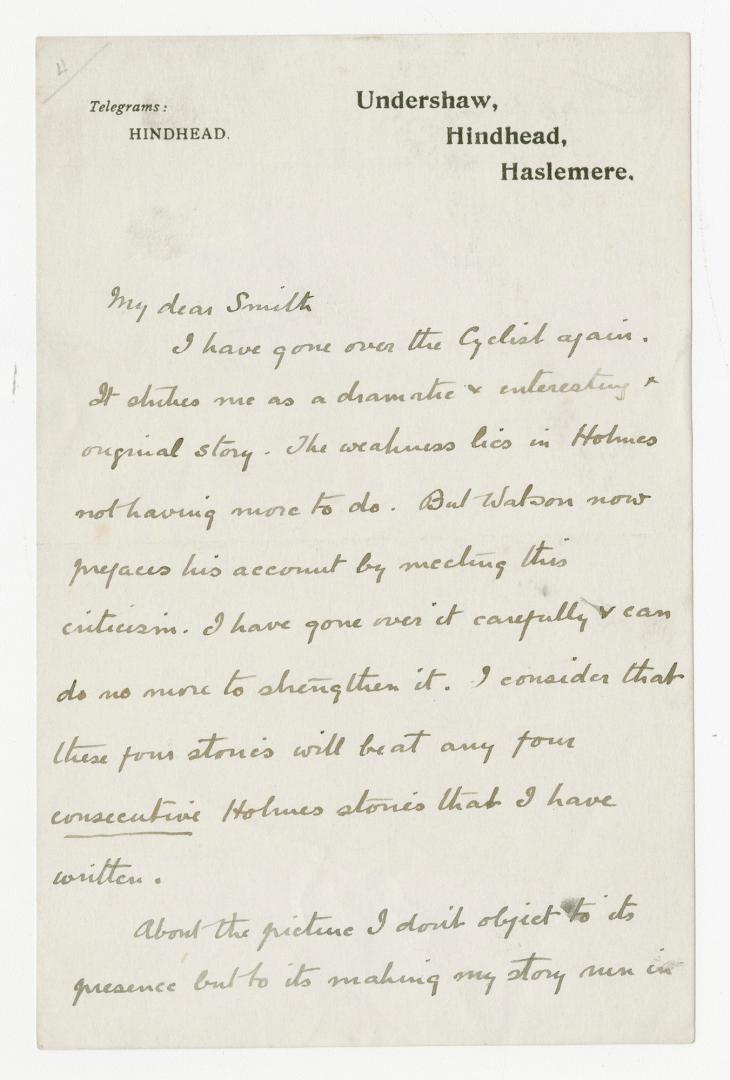 4
Telegrams:
HINDHEAD.
Undershaw,
Hindhead,
Haslemere.
My dear Smith
I have gone over the Cyclist again.
It strikes me as a dramatic & interesting &
original story. The weakness lies in Holmes
not having more to do. But Watson now
prefaces his account by meeting this
criticism. I have gone over it carefully & can
do no more to strengthen it. I consider that
these four stories will beat any four
consecutive Holmes stories that I have
written.
About the picture I don't object to its
presence but to its making my story run in